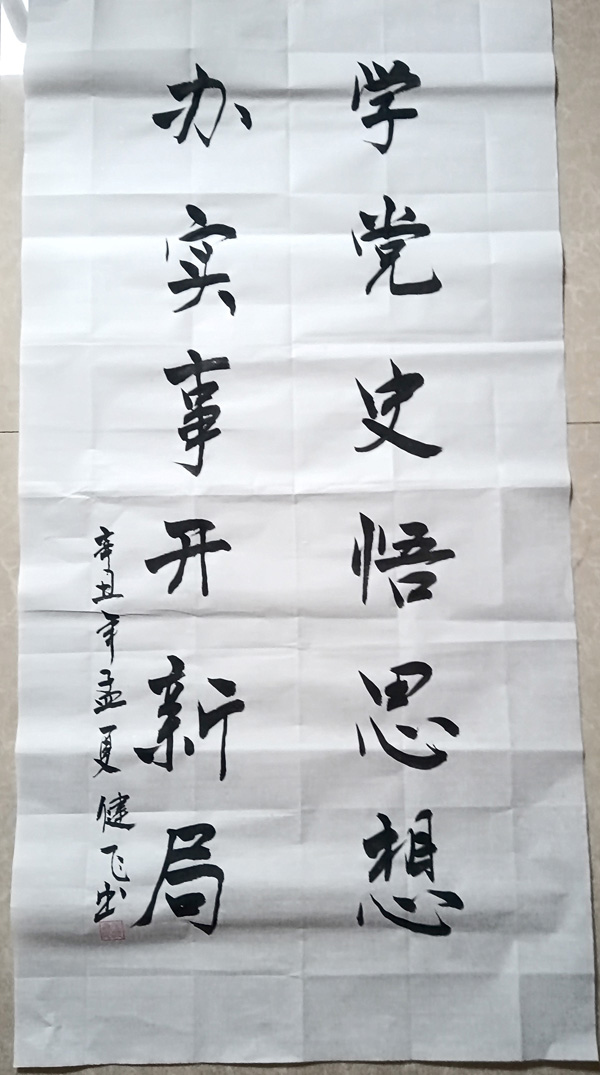 学党史悟思想
办实事开新局
辛丑年孟夏健飞书